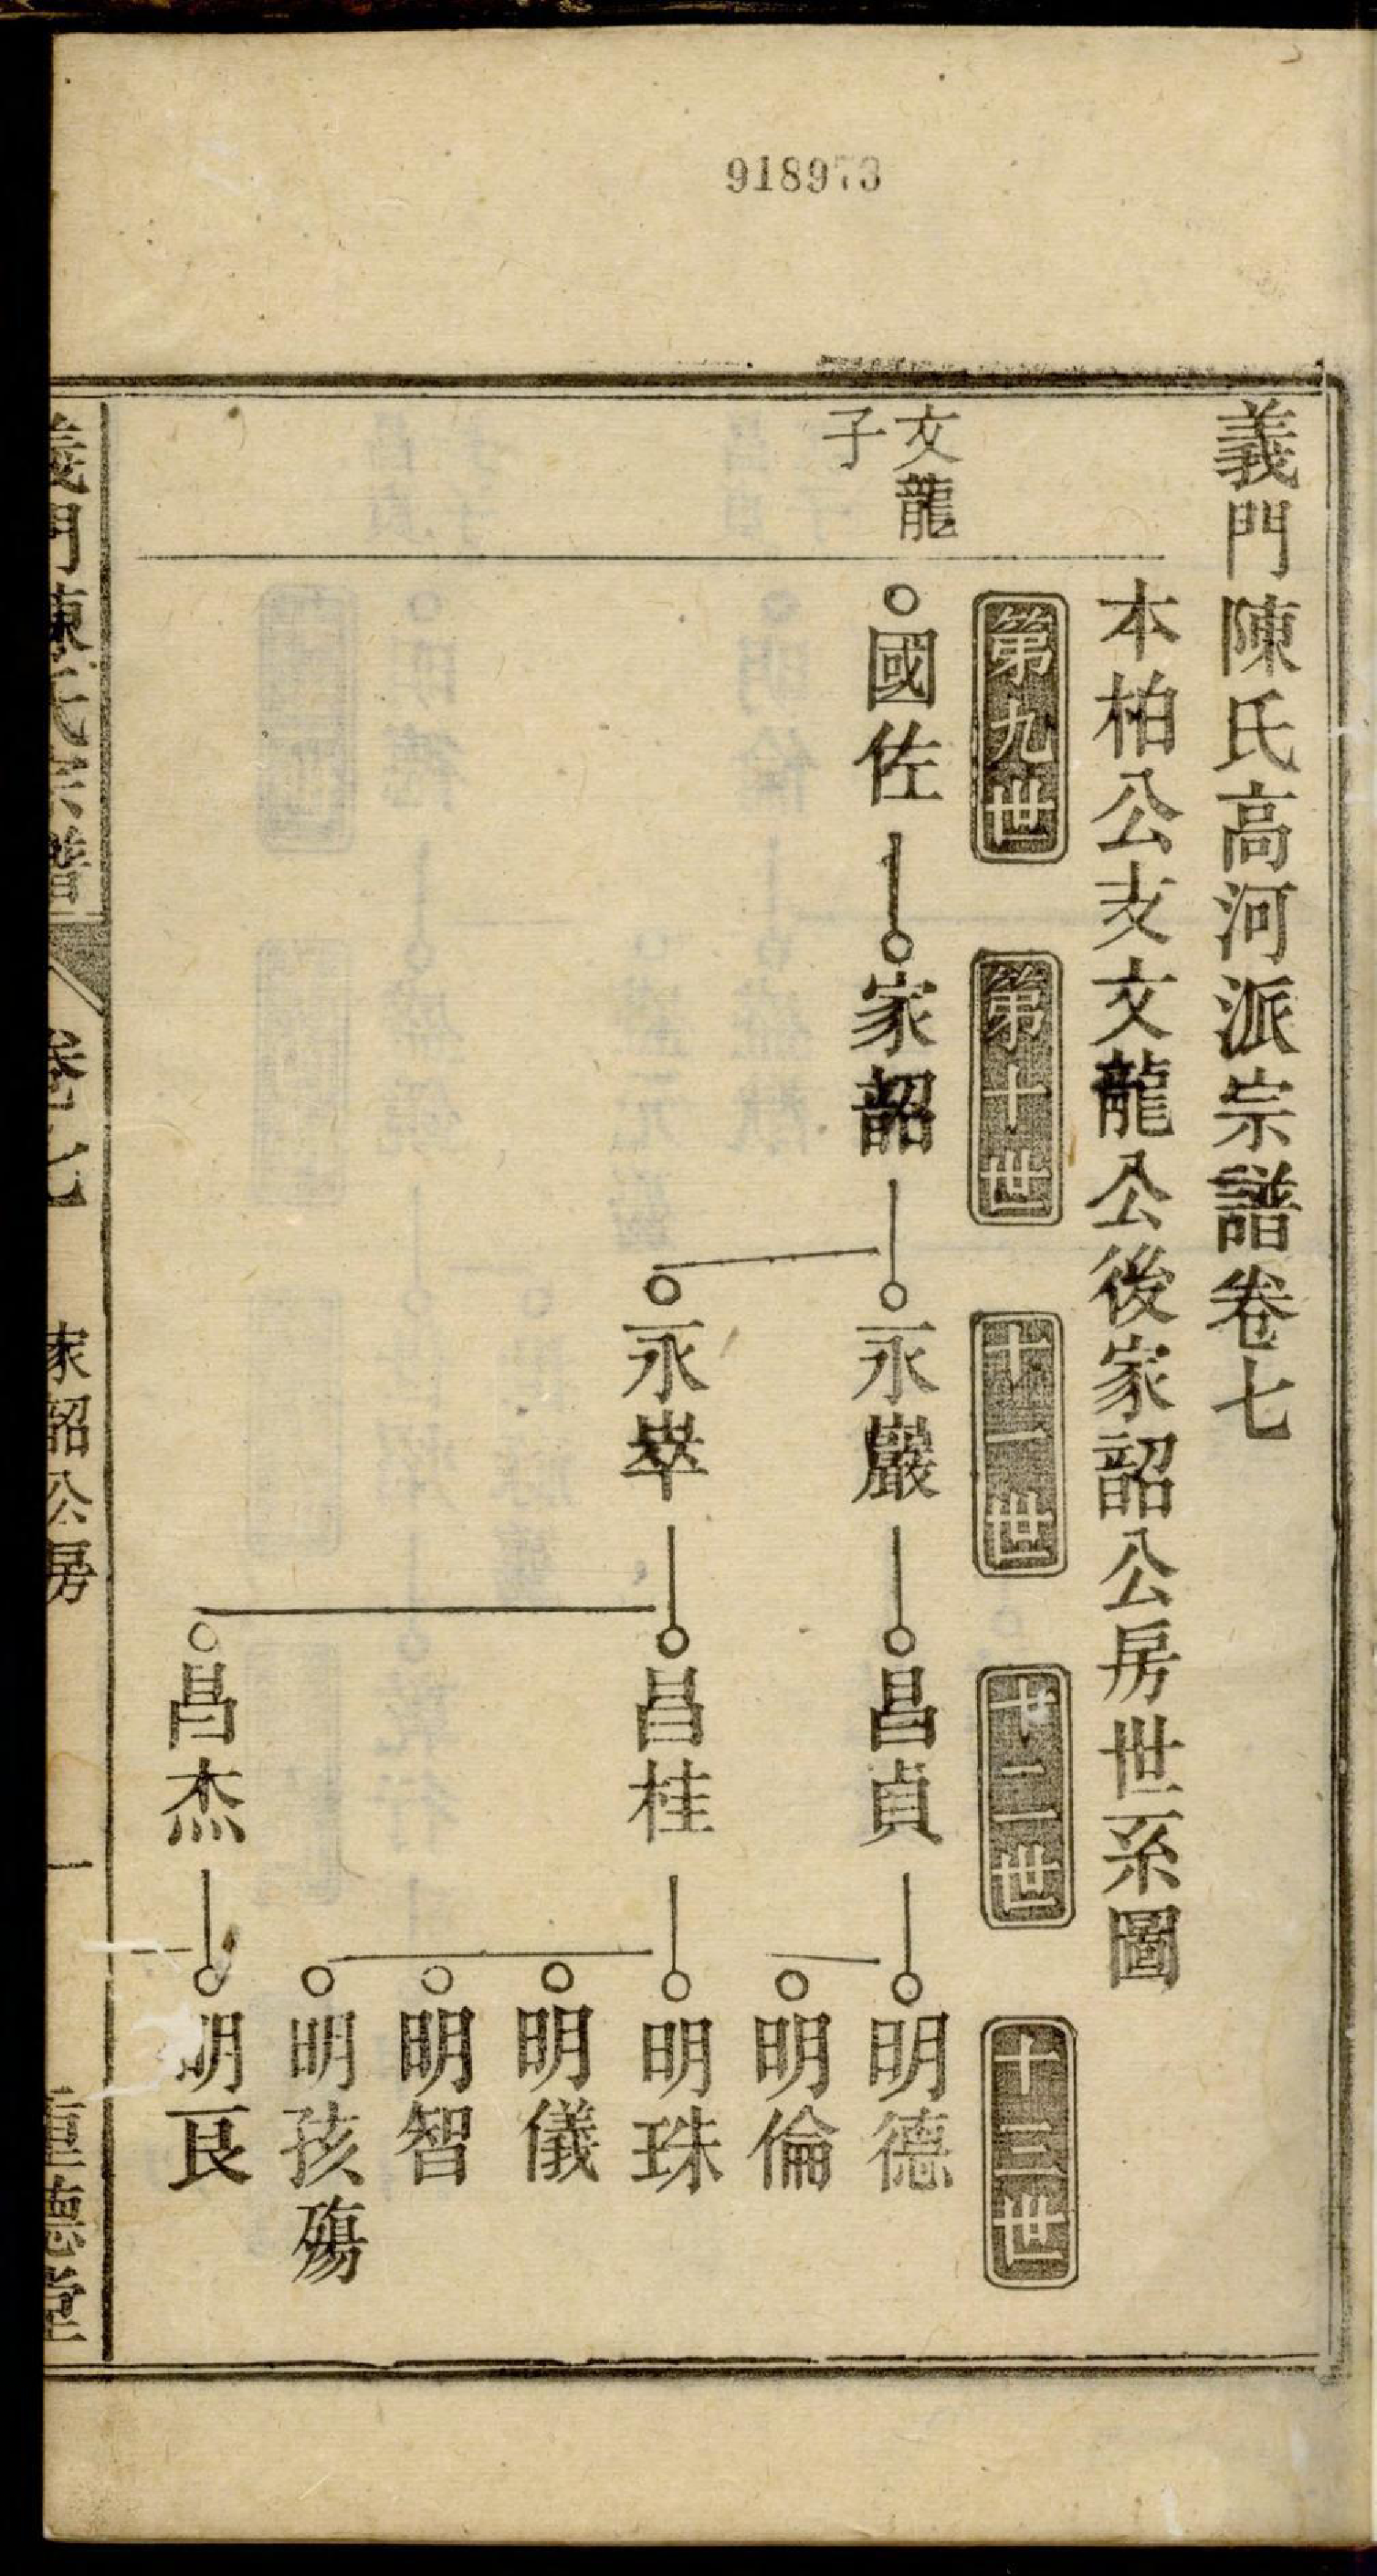 918973
義門陳氏高河派宗譜卷七
本柏公支文龍公後家韶公房世系圖
第九世
第十世
十一世
十二世
十三世
文龍
子
國佐
家韶
永巖
昌貞
明德
明倫
永翠
昌桂
明珠
明儀
明智
明孩殤
昌杰
明良
義門陳氏宗譜
卷七
家韶公房
一
重德堂